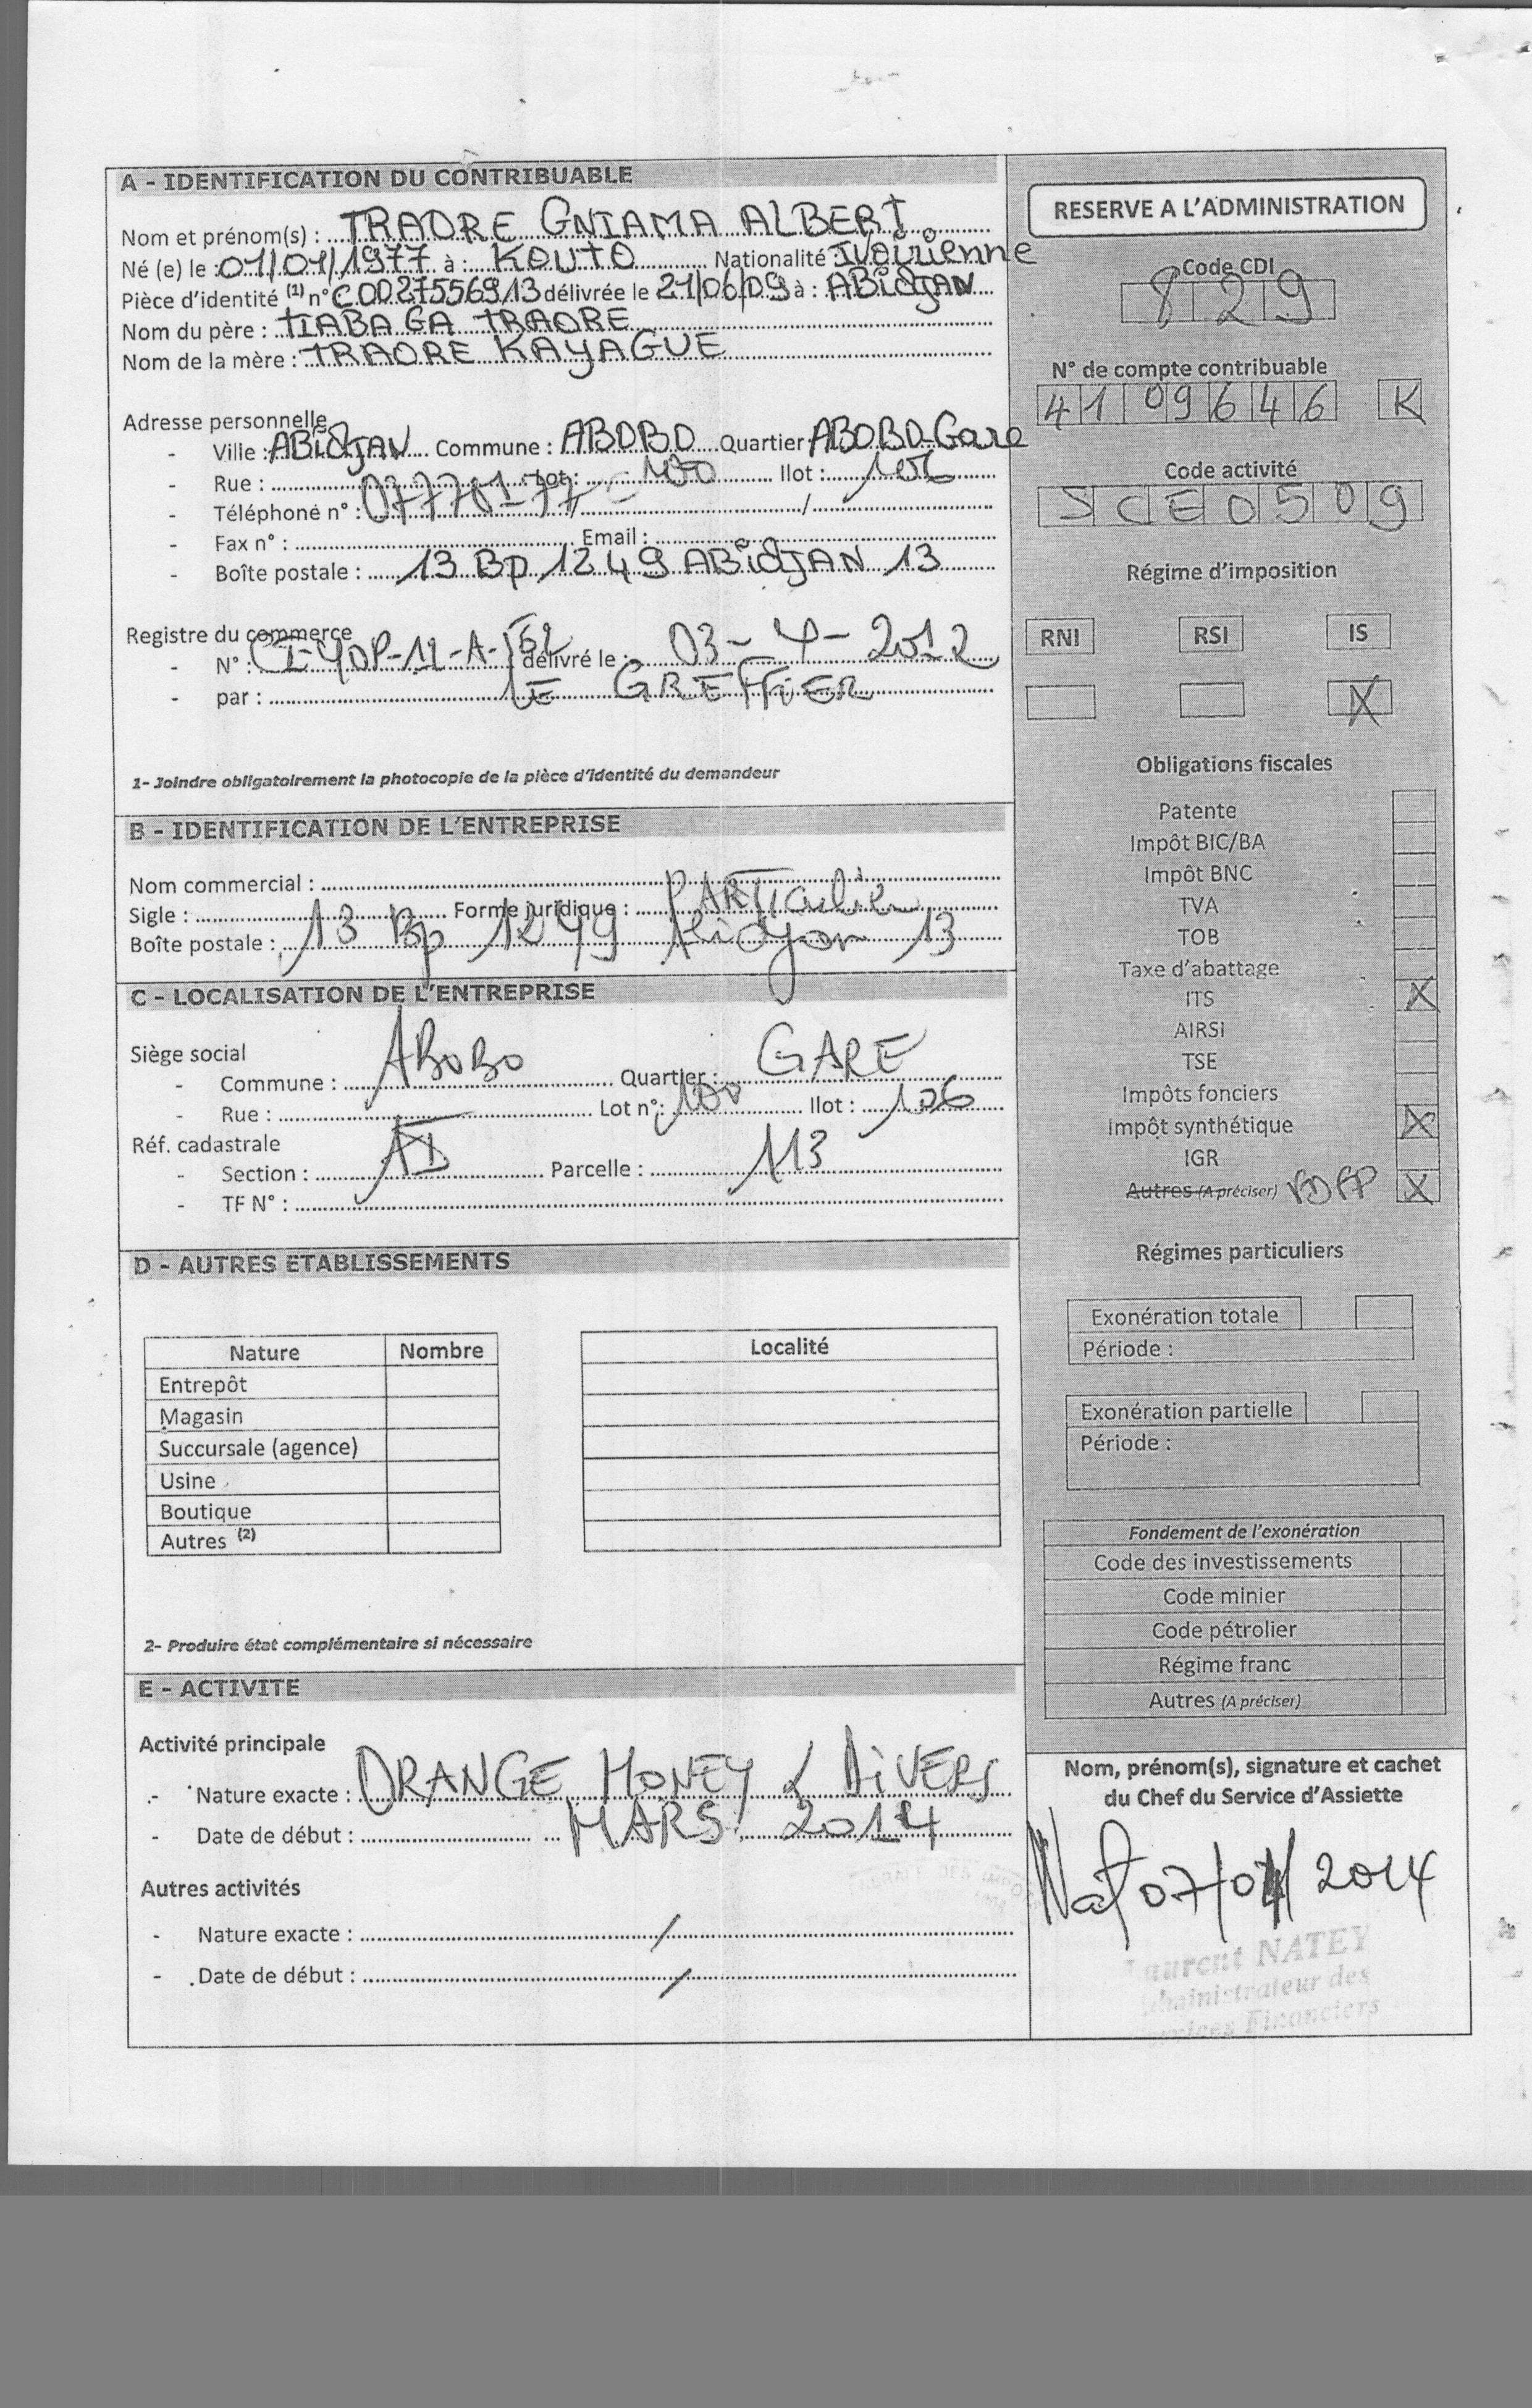 A - IDENTIFICATION DU CONTRIBUABLE
Nom et prénom(s) : TRAORE GNIAMA ALBERT
Né (e) le : 01/01/1977 à : KOUTO Nationalité : Ivoirienne
Pièce d'identité (1) n° C 0027556913 délivrée le 21/06/09 à : ABidJAN
Nom du père : TIABAGA TRAORE
Nom de la mère : TRAORE KAYAGUE
Adresse personnelle
- Ville : ABidJAN Commune : ABOBO Quartier : ABOBO-Gare
- Rue : Lot : 100 Ilot : 106
- Téléphone n° : / /
- Fax n° : Email :
- Boîte postale : 13 Bp 1249 ABidJAN 13
Registre du commerce
- N° : délivré le : 03-4-2012
- par : LE GREFFiER
1- Joindre obligatoirement la photocopie de la pièce d'identité du demandeur
B - IDENTIFICATION DE L'ENTREPRISE
Nom commercial :
Sigle : Forme juridique : PARTiculier
Boîte postale : 13 Bp 1249 Abidjan 13
C - LOCALISATION DE L'ENTREPRISE
Siège social
- Commune : ABOBO Quartier : GARE
- Rue : Lot n° : 100 Ilot : 106
Réf. cadastrale
- Section : Parcelle : 113
- TF N° :
D - AUTRES ETABLISSEMENTS
Nature Nombre Localité
Entrepôt
Magasin
Succursale (agence)
Usine
Boutique
Autres (2)
2- Produire état complémentaire si nécessaire
E - ACTIVITE
Activité principale
- Nature exacte : ORANGE MONEY & DiVERS
- Date de début : MARS 2014
Autres activités
- Nature exacte : /
- Date de début : /
RESERVE A L'ADMINISTRATION
Code CDI
8 2 9
N° de compte contribuable
4 1 0 9 6 4 6 K
Code activité
S C E 0 5 0 9
Régime d'imposition
RNI RSI IS
X
Obligations fiscales
Patente
Impôt BIC/BA
Impôt BNC
TVA
TOB
Taxe d'abattage
ITS X
AIRSI
TSE
Impôts fonciers
Impôt synthétique X
IGR
Autres (A préciser) FDFP X
Régimes particuliers
Exonération totale
Période :
Exonération partielle
Période :
Fondement de l'exonération
Code des investissements
Code minier
Code pétrolier
Régime franc
Autres (A préciser)
Nom, prénom(s), signature et cachet
du Chef du Service d'Assiette
07/04/2014
Laurent NATEY
Administrateur des
Services Financiers